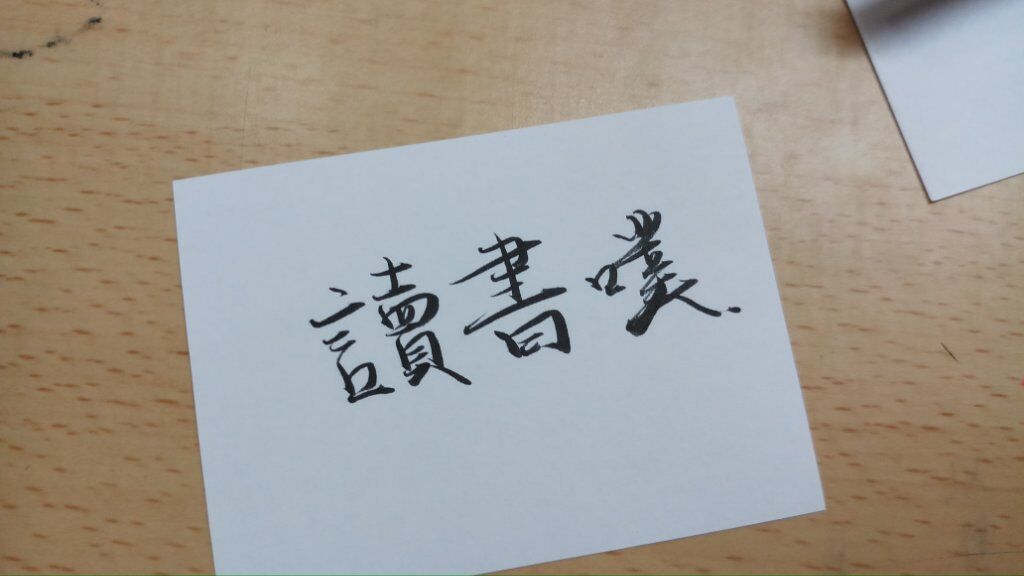 讀書噗.